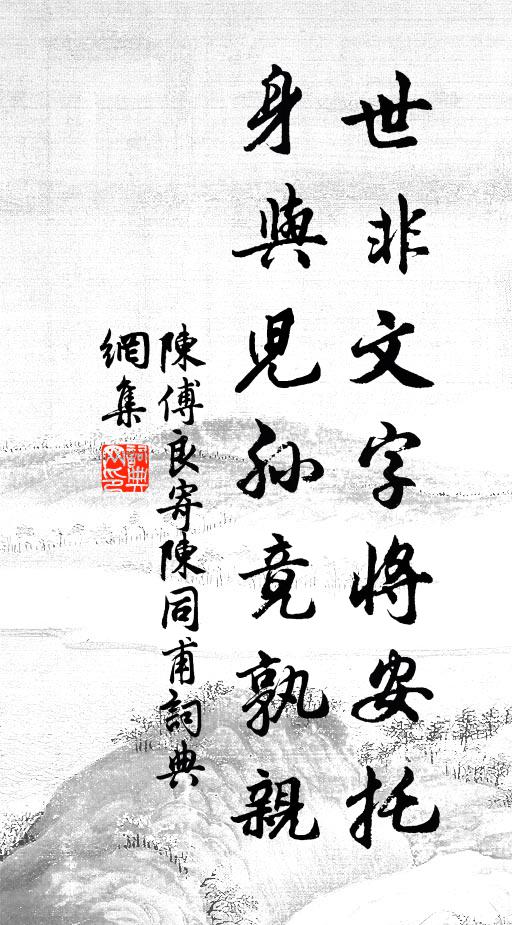 世非文字將安托
身與兒孫竟孰親
陳傅良寄陳同甫詞典
網集
詞典
网印